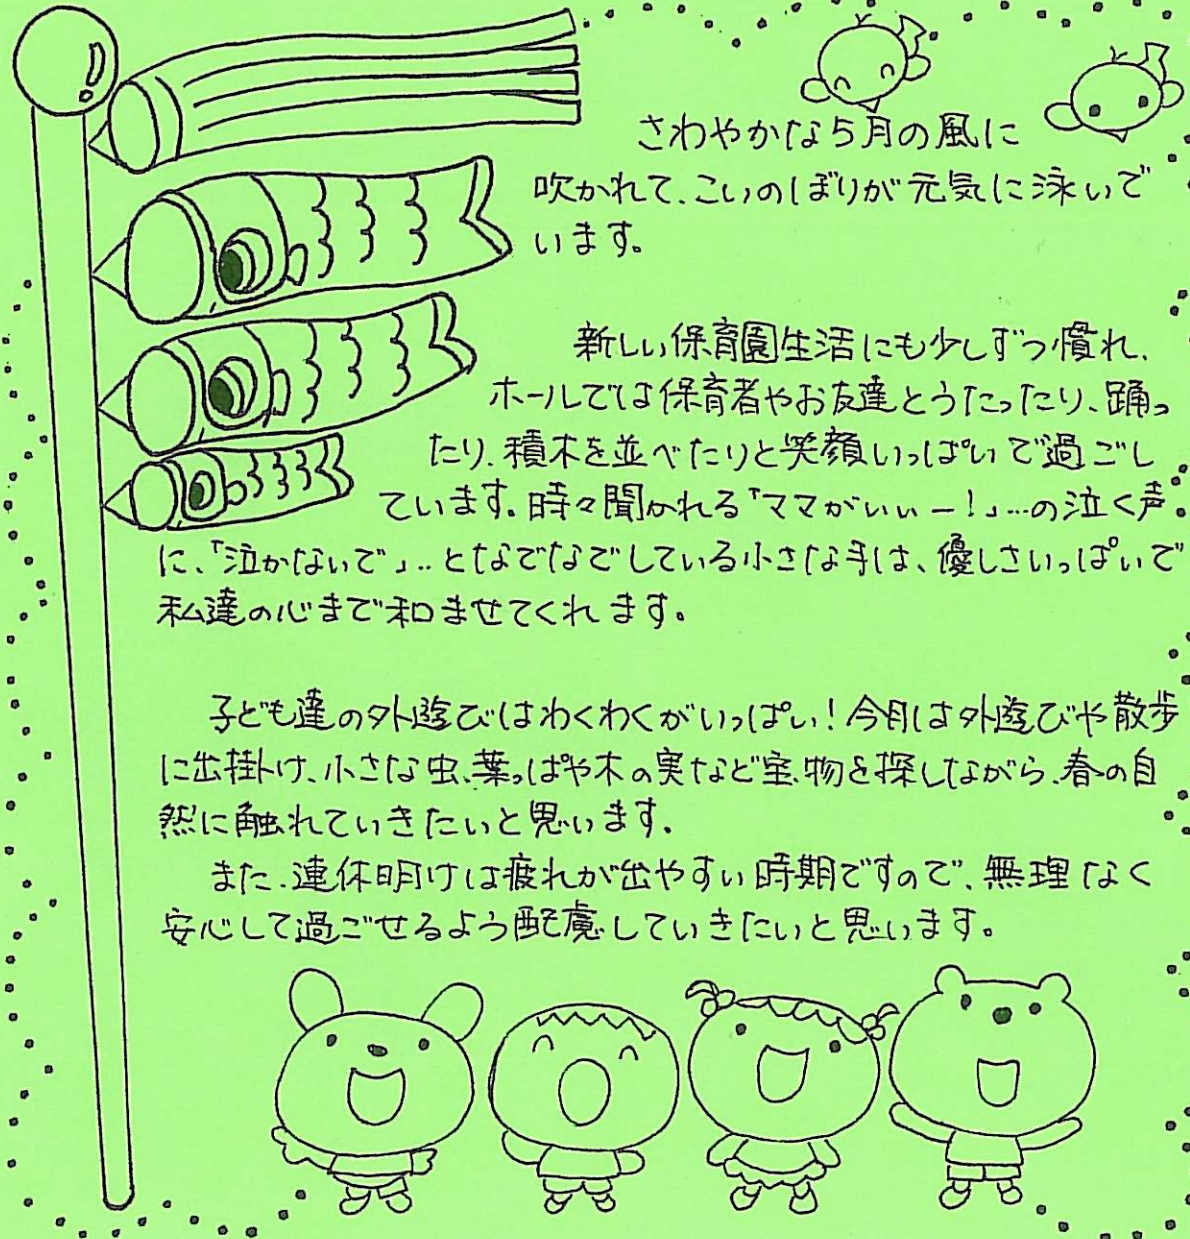 さわやかな5月の風に
吹かれて、こいのぼりが元気に泳いで
います。
新しい保育園生活にも少しずつ慣れ、
ホールでは保育者やお友達とうたったり、踊っ
たり、積木を並べたりと笑顔いっぱいで過ごし
ています。時々聞かれる「ママがいぃー!」…の泣く声
に、「泣かないで」..となでなでしている小さな手は、優しさいっぱいで
私達の心まで和ませてくれます。
子ども達の外遊びはわくわくがいっぱい!今月は外遊びや散歩
に出掛け、小さな虫、葉っぱや木の実など宝物を探しながら、春の自
然に触れていきたいと思います。
また、連休明けは疲れが出やすい時期ですので、無理なく
安心して過ごせるよう配慮していきたいと思います。